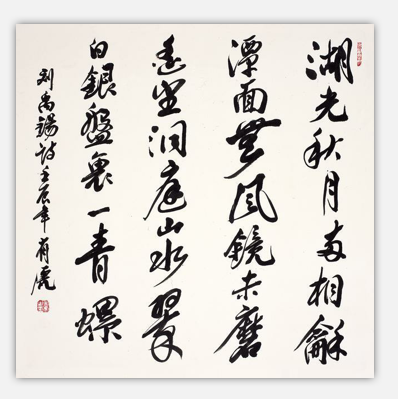 湖光秋月两相龢
潭面無風鏡未磨
遥望洞庭山水翠
白銀盤裏一青螺
刘禹锡诗壬辰年肖